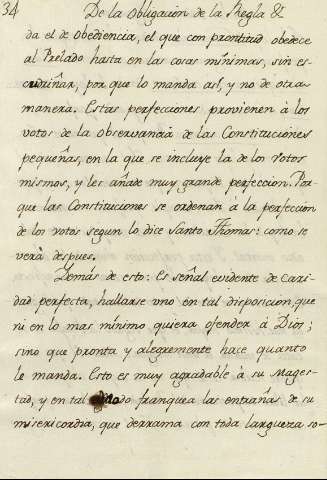 34 De la Obligacion de la Regla &
da el de Obediencia, el que con prontitud obedece
al Prelado hasta en las cosas minimas, sin es-
cudriñar, por que lo manda asi, y no de otra
manera. Estas perfecciones provienen à los
votos de la Observancia de las Constituciones
pequeñas, en la que se incluye la de los votos
mismos, y les añade muy grande perfeccion. Por-
que las Constituciones se ordenan à la perfeccion
de los votos segun lo dice Santo Thomas: como se
verà despues.
Demàs de esto: Es señal evidente de Cari-
dad perfecta, hallarse uno en tal disposicion que
ni en lo mas minimo quiera ofender à Dios;
sino que pronta y alegremente hace quanto
le manda. Esto es muy agradable à su Mages-
tad, y en tal do franquea las entrañas de su
misericordia, que derrama con toda largueza so-